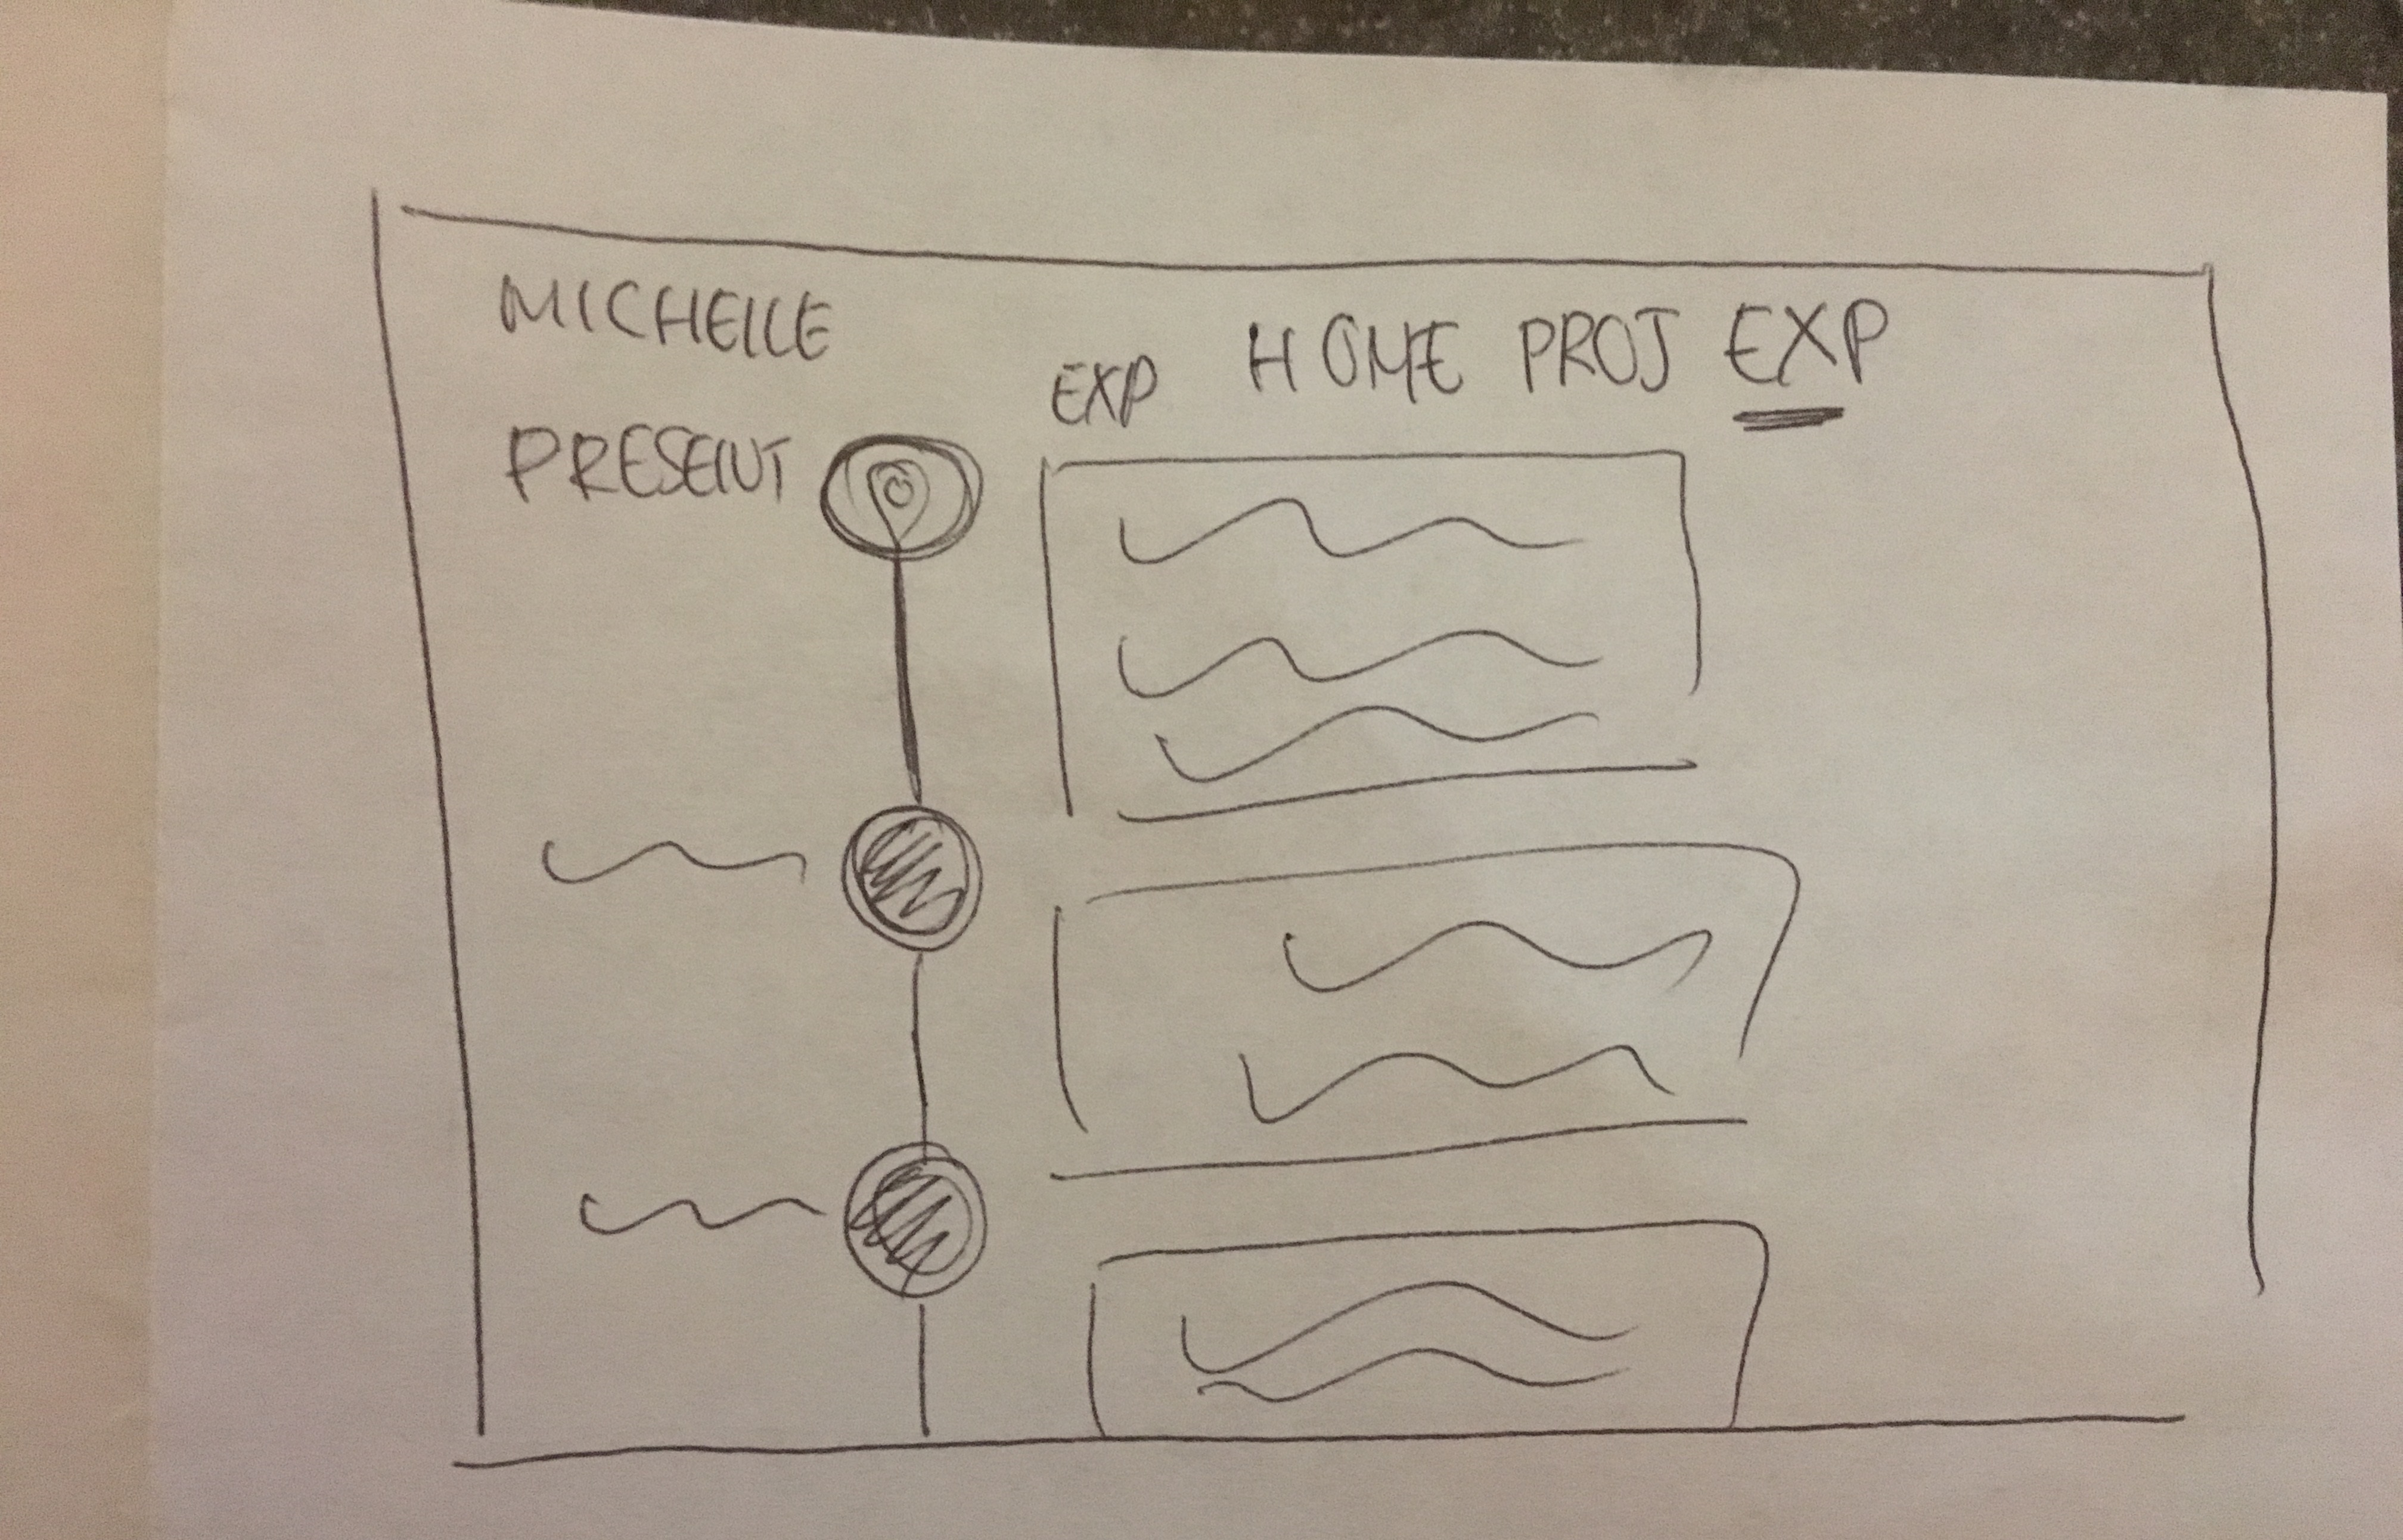 MICHELLE
HOME PROJ EXP
EXP
PRESENT